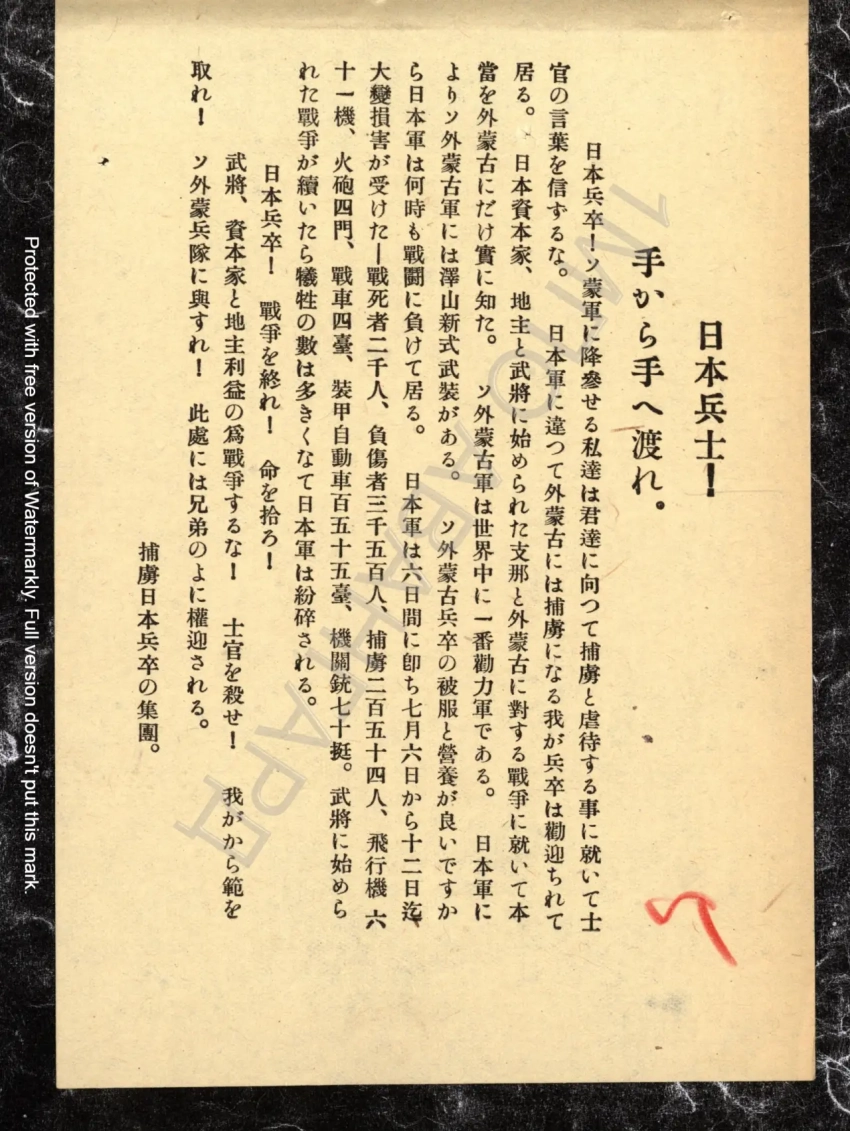 日本兵士！
手から手へ渡れ。
日本兵卒！ソ蒙軍に降參せる私達は君達に向つて捕虜と虐待する事に就いて士
官の言葉を信ずるな。　日本軍に違つて外蒙古には捕虜になる我が兵卒は勸迎ちれて
居る。　日本資本家、地主と武將に始められた支那と外蒙古に對する戰爭に就いて本
當を外蒙古にだけ實に知た。　ソ外蒙古軍は世界中に一番勸力軍である。　日本軍に
よりソ外蒙古軍には澤山新式武裝がある。　ソ外蒙古兵卒の被服と營養が良いですか
ら日本軍は何時も戰鬪に負けて居る。　日本軍は六日間に卽ち七月六日から十二日迄
大變損害が受けた―戰死者二千人、負傷者三千五百人、捕虜二百五十四人、飛行機六
十一機、火砲四門、戰車四臺、裝甲自動車百五十五臺、機關銃七十挺。武將に始めら
れた戰爭が續いたら犧牲の數は多きくなて日本軍は紛碎される。
日本兵卒！　戰爭を終れ！　命を拾ろ！
武將、資本家と地主利益の爲戰爭するな！　士官を殺せ！　我がから範を
取れ！　ソ外蒙兵隊に與すれ！　此處には兄弟のよに權迎される。
捕虜日本兵卒の集團。
Protected with free version of Watermarkly. Full version doesn't put this mark.